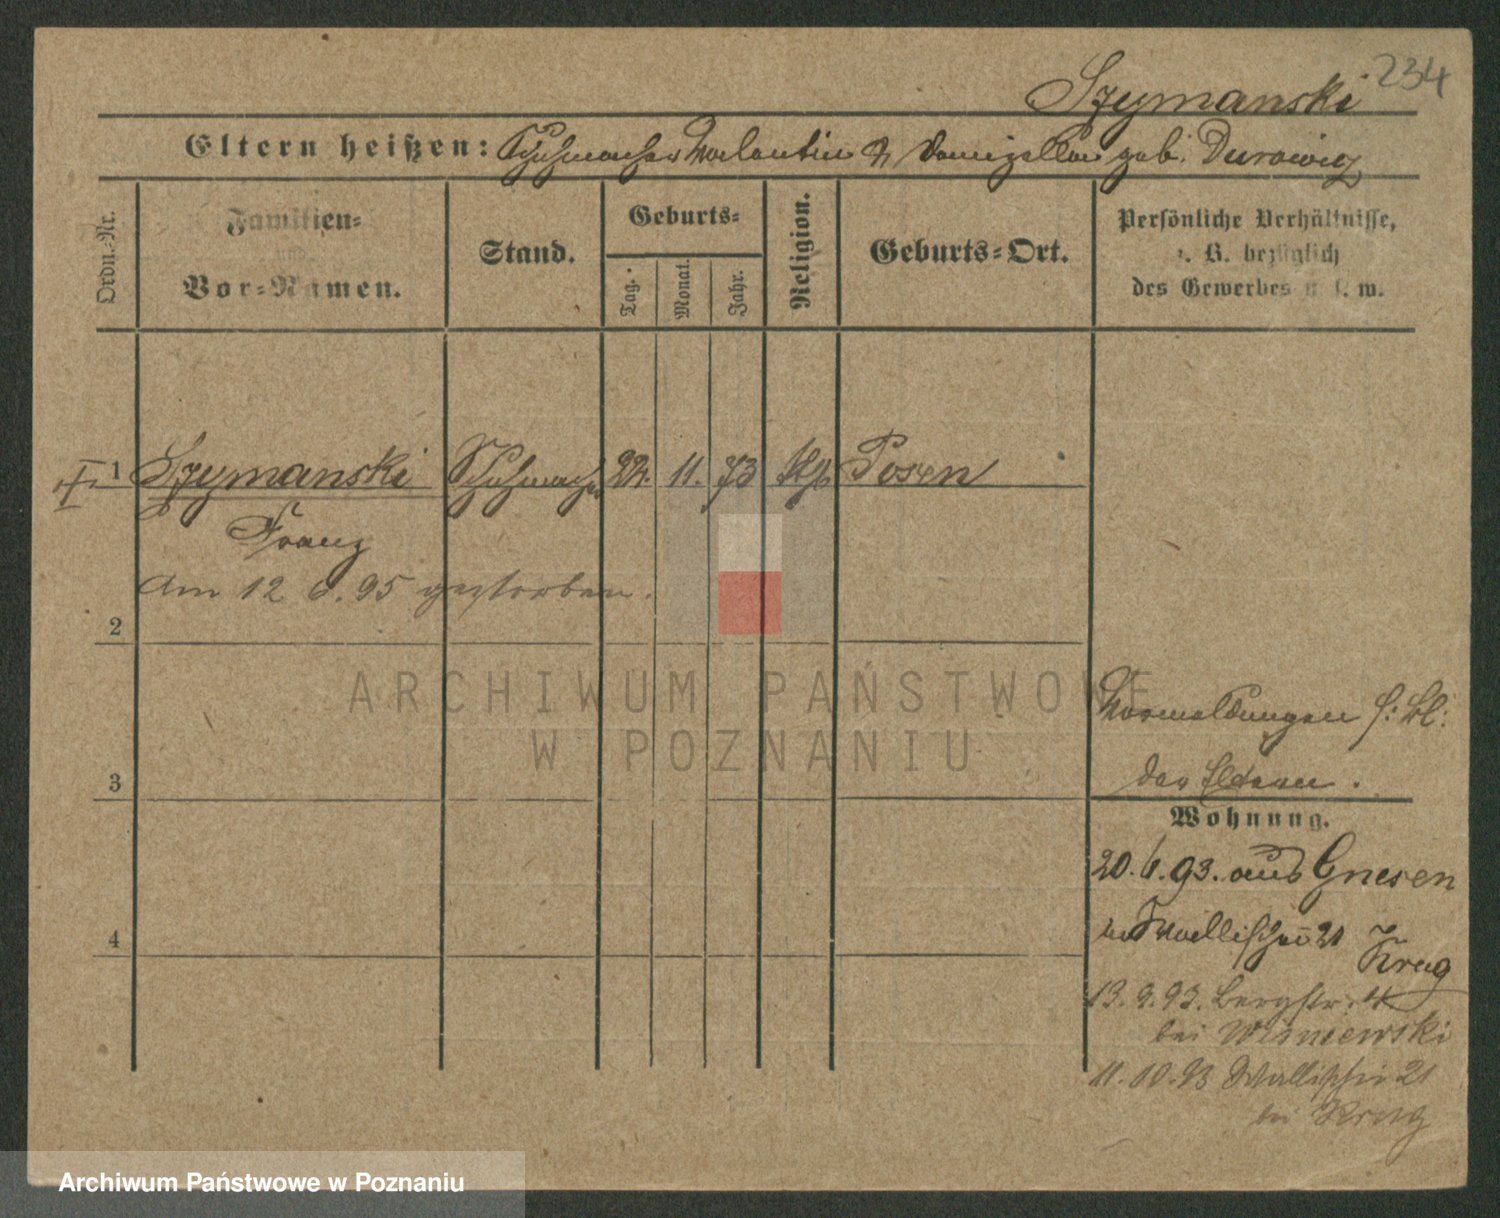 234
Szymanski
Eltern heißen: Schuhmacher Valentin & geb. Durowicz
Ordn.-Nr.
Familien-
und
Vor-Namen.
Stand.
Geburts-
Tag.
Monat.
Jahr.
Religion.
Geburts-Ort.
Persönliche Verhältnisse,
z. B. bezüglich
des Gewerbes u. s. w.
1 Szymanski Schuhmacher 22. 11. 73 kth Posen
Franz
Am 12 6. 95 gestorben.
2
ARCHIWUM PAŃSTWOWE
W POZNANIU
Vormeldungen s: Bl:
der Eltern.
3
Wohnung.
20. 6. 93. aus Gnesen
Wallischei 21 Krug
4
13. 9. 93. Bergstr. 14
bei Wisniewski
11. 10. 93 Wallischei 21
bei Krug
Archiwum Państwowe w Poznaniu